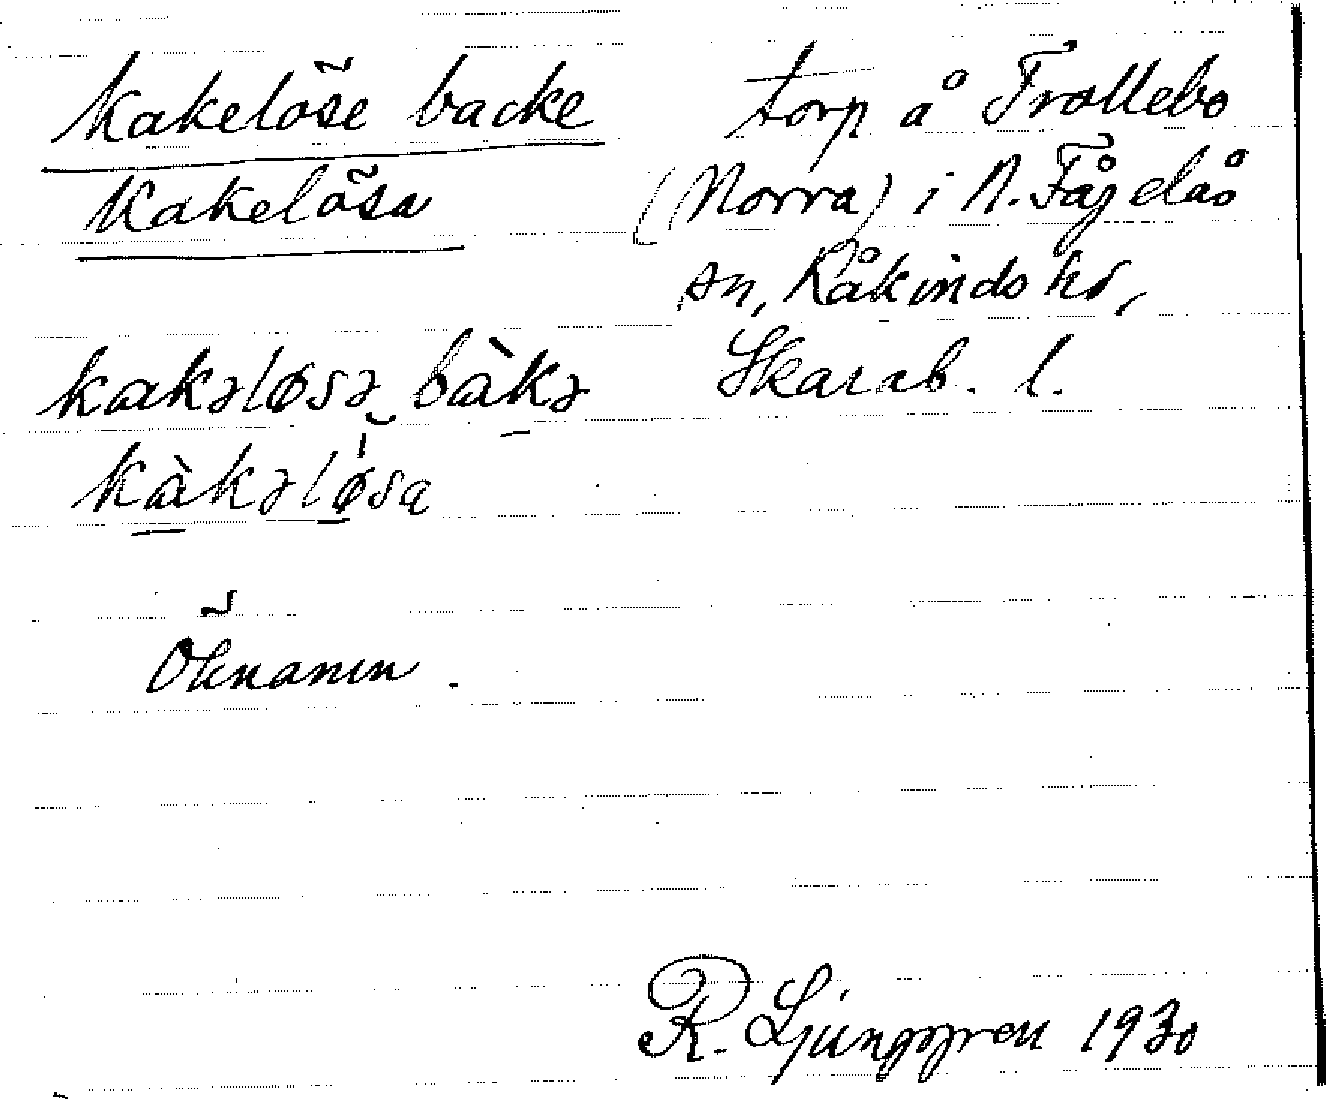 Kakelöse backe
Kakelösa
torp å Trollebo
(Norra) i N. Fågelås
sn, Kåkinds hd,
Skarab. l.
kakəløsə bàkə
kàkəløsa
Öknamn.
R. Ljunggren 1930